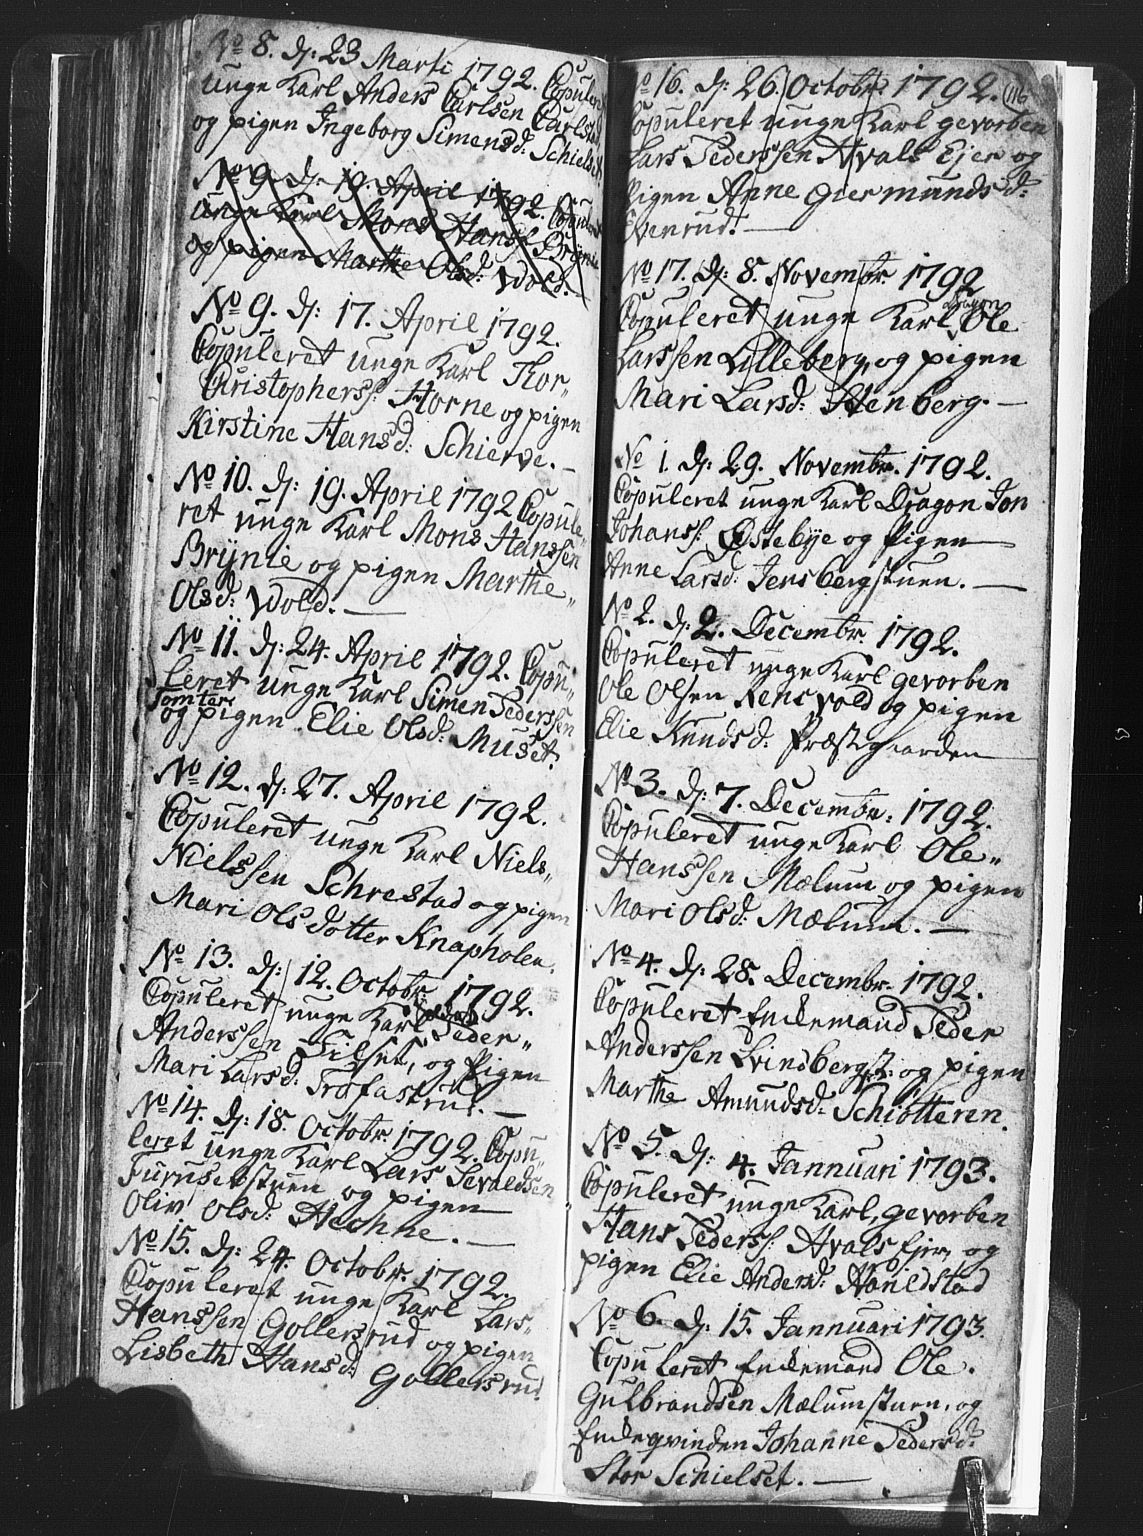 No 8. d: 23 Marti 1792. Copuleret
unge Karl Anders Carlsen Carlstad
og pigen Ingeborg Simensd: Schielset
No 9. d: 19. April 1792. Copuleret
unge Karl Mons Hanss: Brÿnie
og pigen Marthe Olsd: Wold.
No 9. d: 17. April 1792.
Copuleret unge Karl Thor„
Christopherss: Horne og pigen
Kirstine Hansd: Schierve. —
No 10. d: 19. April 1792 Copule„
ret unge Karl Mons Hanssen
Brÿnie og pigen Marthe„
Olsd: Wold. —
No 11. d: 24. April 1792. Copu„
leret unge Karl Simen Pederssen
Tomter
og pigen Elie Olsd: Muset.
No 12. d: 27. April 1792.
Copuleret unge Karl Niels„
Nielssen Schrestad og pigen
Mari Olsdotter Knapholen.
No 13. d: 12. Octobr. 1792.
Copuleret unge Karl Peder„
Anderssen Filset, og Pigen
Mari Larsd: Trofastrud. —
No 14. d: 18. Octobr. 1792. Copu„
leret unge Karl Lars Sevaldsen
Furusetstuen og pigen
Oliv Olsd: Hechne. —
No 15. d: 24. Octobr. 1792.
Copuleret unge Karl Lars„
Hanssen Gollersrud og pigen
Lisbeth Hansd:
Gollersrud
116
No 16. d: 26. Octobr. 1792.
Copuleret unge Karl gevorben
Lars Pederssen Hvals Ejer og
Pigen Anne Giermundsd:
Evenrud. —
No 17. d: 8. Novembr. 1792
Dragon
Copuleret unge Karl Ole
Larssen Lilleberg, og pigen
Mari Larsd: Stenberg. —
No 1. d: 29. Novembr. 1792.
Copuleret unge Karl Dragon Jon
Johanss: Østebye og Pigen
Anne Larsd: Jensbergstuen. —
No 2. d: 2. Decembr. 1792.
Copuleret unge Karl gevorben
Ole Olsen Rensvold og pigen
Elie Knudsd: Præstegaarden
No 3. d: 7. Decembr: 1792.
Copuleret unge Karl Ole„
Hanssen Mælum og pigen
Mari Olsd: Mælum. —
No 4. d: 28. Decembr. 1792.
Copuleret Enkemand Peder
Anderssen Lvindbergst: og pigen
Marthe Amundsd: Schiötteren.
No 5. d: 4. Jannuari 1793.
Copuleret unge Karl, gevorben
Hans Pederss: Hvals Ejer, og
pigen Elie Andersd: Haraldstad
No 6. d: 15. Jannuari 1793.
Copuleret Enkemand Ole.
Gulbrandsen Mælumstuen, og
Enkeqvinden Johanne Pedersd:
Stor Schielset. —